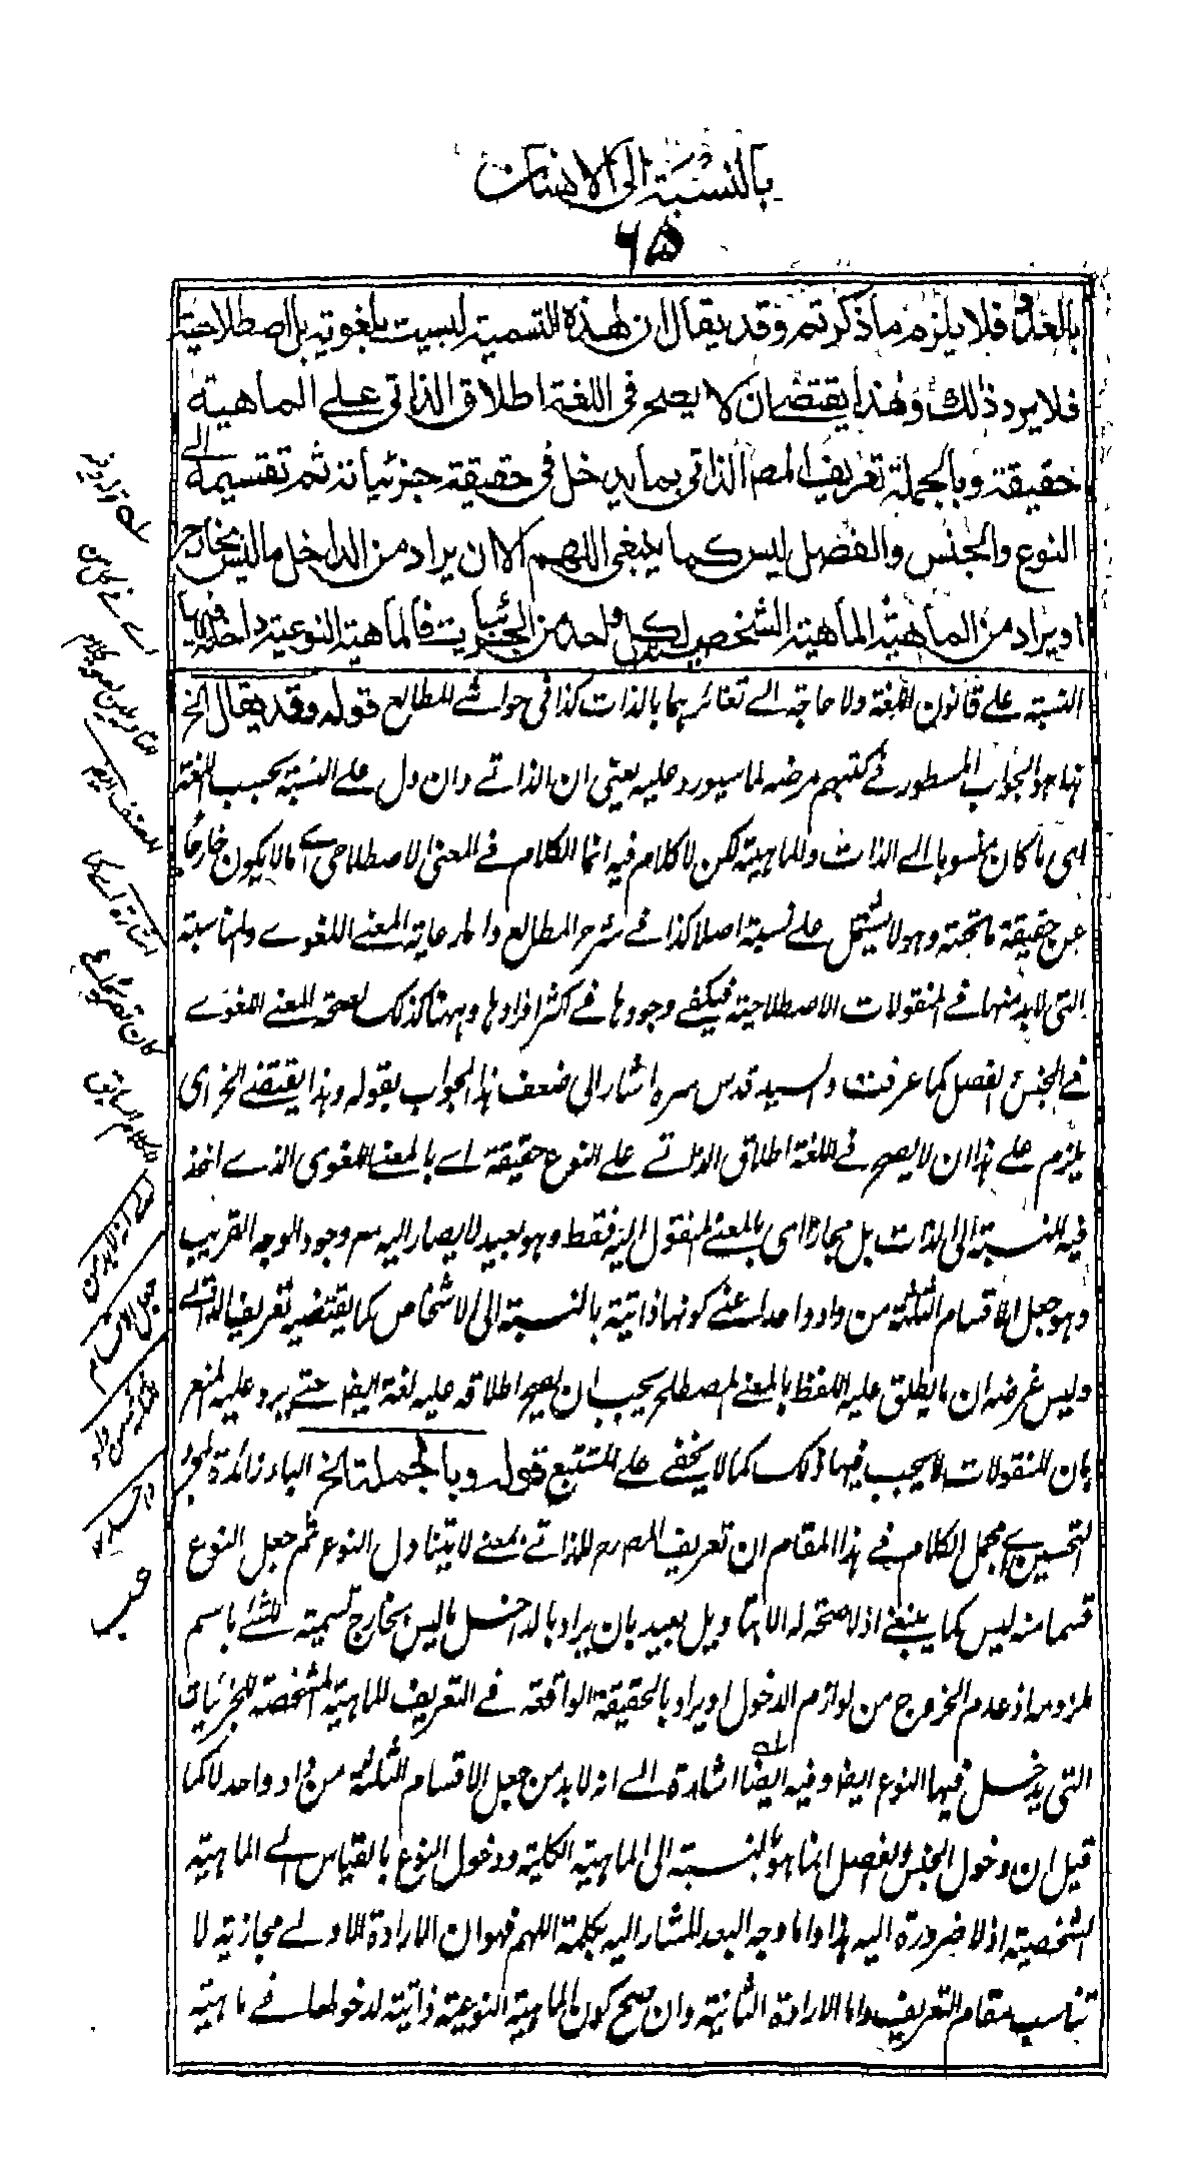 بالنسبة الى الانسان
٦٥
فلا يلزم ما ذكرتم وقد يقال ان هذه التسمية ليست بلغوية بل اصطلاحية
فلا يرد ذلك وهذا يقتضى ان لا يصح فى اللغة اطلاق الذاتى على الماهية
حقيقة وبالجملة تعريف المصر الذاتى بما يدخل فى حقيقة جزئياته ثم تقسيمه الى
النوع والجنس والفصل ليس كما ينبغى اللهم الا ان يراد من الداخل ما ليس بخارج
او يراد من الماهية الماهية الشخصية لكل واحد من الجزئيات فالماهية النوعية داخلة فيها
النسبة على قانون اللغة ولا حاجة الے تغائرهما بالذات كذا فى حواشے المطالع قوله وقد يقال الخ
هذا هو الجواب المسطور فے كتبهم مرضه لما سيورد عليه يعنى ان الذاتے وان دل علے النسبة بحسب اللغة
اى ما كان منسوبا الے الذات والماهية لكن لا كلام فيه انما الكلام فے المعنى الاصطلاحى اے ما لا يكون خارجا
عن حقيقة ما تحته وهو لا يشتمل علے نسبة اصلا كذا فے شرح المطالع واما رعاية المعنے اللغوے والمناسبة
التى لا بد منها فے المنقولات الاصطلاحية فيكفے وجودها فے اكثر افرادها وههنا كذلك لصحة المعنے اللغوے
فے الجنس والفصل كما عرفت والسيد قدس سره اشار الى ضعف هذا الجواب بقوله وهذا يقتضے الخ اى
يلزم علے هذا ان لا يصح فے اللغة اطلاق الذاتے علے النوع حقيقة اے بالمعنے اللغوى الذے اخذ
فيه النسبة الى الذات بل مجازا اى بالمعنے المنقول اليه فقط وهو بعيد لا يصار اليه مع وجود الوجه القريب
وهو جعل الاقسام الثلثة من واد واحد اعنے كونها ذاتية بالنسبة الى الاشخاص كما يقتضيه تعريف الذاتے
وليس غرضه ان ما يطلق عليه اللفظ بالمعنے المصطلح يجب ان يصح اطلاقه عليه لغة ايضا حتے يرد عليه المنع
بان المنقولات لا يجب فيها ذلك كما لا يخفے علے المتتبع قوله وبالجملة الخ الباء زائدة لمجرد
التحسين اے مجمل الكلام فے هذا المقام ان تعريف المصرح للذاتے بمعنے لا يتناول النوع ثم جعل النوع
قسما منه ليس كما ينبغے اذ لا صحة له الا بتاويل بعيد بان يراد بالداخل ما ليس بخارج تسمية للشئ باسم
ملزومه اذ عدم الخروج من لوازم الدخول او يراد بالحقيقة الواقعة فے التعريف الماهية المشخصة للجزئيات
التى يدخل فيها النوع ايضا وفيه ايضا اشارة الے انه لا بد من جعل الاقسام الثلثة من واد واحد لا كما
قيل ان دخول الجنس والفصل انما هو بالنسبة الى الماهية الكلية ودخول النوع بالقياس الے الماهية
الشخصية اذ لا ضرورة اليه هذا واما وجه البعد المشار اليه بكلمة اللهم فهو ان الارادة الاولے مجازية لا
تناسب مقام التعريف واما الارادة الثانية وان صح كون الماهية النوعية ذاتية لدخولها فے ماهية